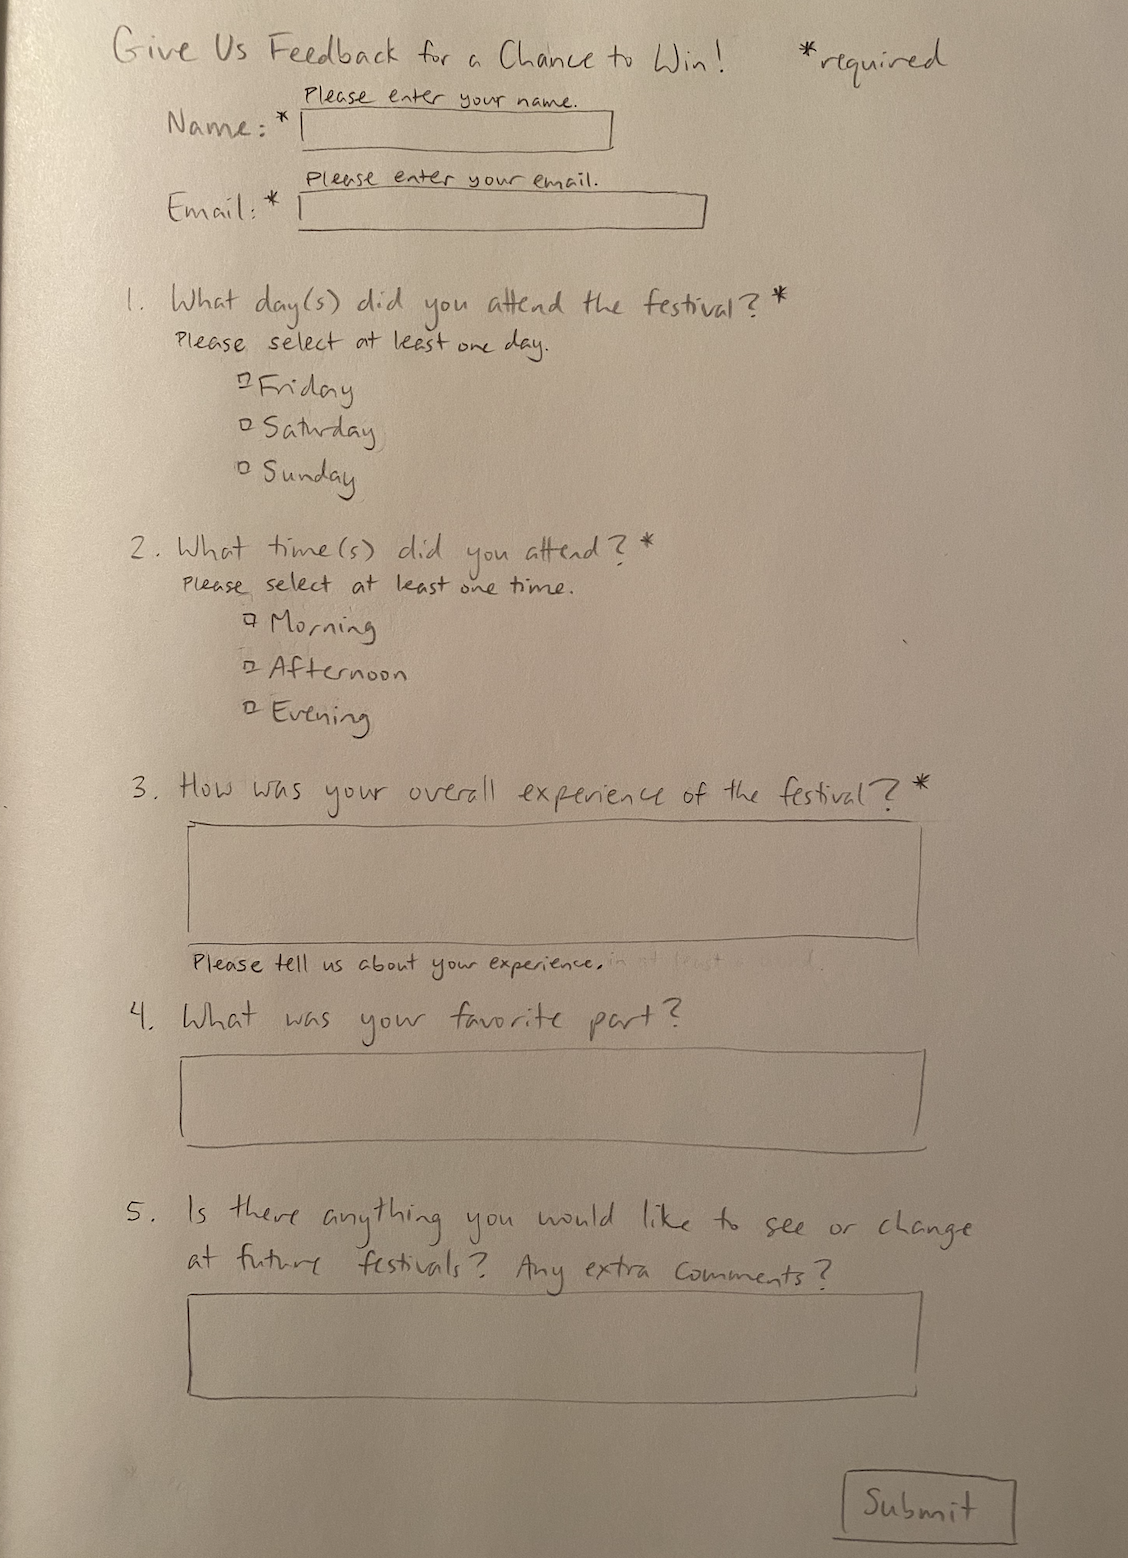 Give Us Feedback for a Chance to Win! *required
Please enter your name.
Name: *
Please enter your email.
Email: *
1. What day(s) did you attend the festival? *
Please select at least one day.
Friday
Saturday
Sunday
2. What time(s) did you attend? *
Please select at least one time.
Morning
Afternoon
Evening
3. How was your overall experience of the festival? *
Please tell us about your experience.
4. What was your favorite part?
5. Is there anything you would like to see or change
at future festivals? Any extra comments?
Submit